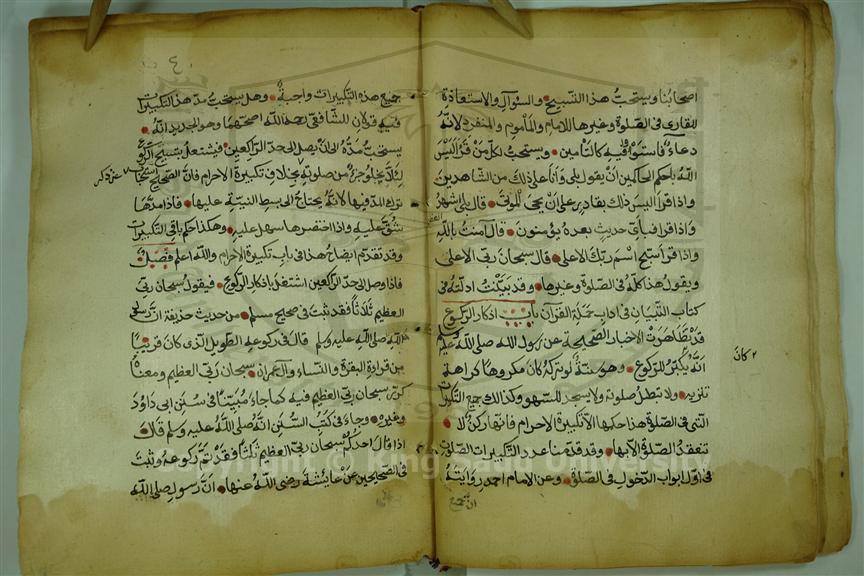 اصحابنا ويستحب هذا التسبيح والسؤال والاستعاذة
للقارئ في الصلوة وغيرها للامام والمأموم والمنفرد لانه
دعاء فاستووا فيه كالتامين ويستحب لكل من قرأ اليس
الله باحكم الحاكمين ان يقول بلى وانا على ذلك من الشاهدين
واذا قرأ اليس ذلك بقادر على ان يحيي الموتى قال بلى اشهد
واذا قرأ فبأي حديث بعده يؤمنون قال آمنت بالله
واذا قرأ سبح اسم ربك الاعلى قال سبحان ربي الاعلى
ويقول هذا كله في الصلوة وغيرها وقد بينت ادلته في
كتاب التبيان في اداب حملة القرآن باب اذكار الركوع
قد تظاهرت الاخبار الصحيحة عن رسول الله صلى الله عليه وسلم
انه يكبر للركوع وهو سنة لو تركه كان مكروها كراهة
٢ كان
تنزيه ولا تبطل صلوته ولا يسجد للسهو وكذلك جميع التكبيرات
التي في الصلوة هذا حكمها الا تكبيرة الاحرام فانها ركن لا
تنعقد الصلوة الا بها وقد قدمنا عدد التكبيرات الصلوة
في اول ابواب الدخول في الصلوة وعن الامام احمد رواية
ان جميع
٤
جميع هذه التكبيرات واجبة وهل يستحب مد هذا التكبيرات
فيه قولان للشافعي رحمه الله اصحهما وهو الجديد انه
يستحب مده الى ان يصل الى حد الراكعين فيشتغل بتسبيح الركوع
لئلا يخلو جزء من صلوته بخلاف تكبيرة الاحرام فان الصحيح استحباب
عن ذكر
ترك المد فيها لانه يحتاج الى بسط النية عليها فاذا مدها
شق عليه واذا اختصرها سهل عليه وهكذا حكم باقي التكبيرات
وقد تقدم ايضاح هذا في باب تكبيرة الاحرام والله اعلم فصل
فاذا وصل الى حد الراكعين اشتغل باذكار الركوع فيقول سبحان ربي
العظيم ثلاثا فقد ثبت في صحيح مسلم من حديث حذيفة ان رسول
الله صلى الله عليه وسلم قال في ركوعه الطويل الذي كان قريبا
من قراءة البقرة والنساء وآل عمران سبحان ربي العظيم ومعناه
كرر سبحان ربي العظيم فيه كما جاء مبينا في سنن ابي داود
وغيره وجاء في كتب السنن انه صلى الله عليه وسلم قال
اذا قال احدكم سبحان ربي العظيم ثلثا فقد تم ركوعه وثبت
في الصحيحين عن عايشة رضي الله عنها ان رسول صلى الله